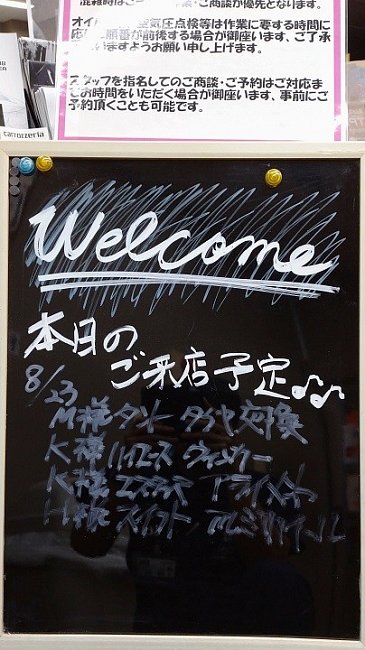 ご商談が優先となります。
オイル 空気圧点検等は作業に要する時間に
応じ 順番が前後する場合が御座います、ご了承
いますようお願い申し上げます。
スタッフを指名してのご商談・ご予約はご対応ま
でお時間をいただく場合が御座います、事前にご
予約頂くことも可能です。
carrozzeria
Welcome
本日の
ご来店予定♪♫
8/23
M様 タント タイヤ交換
K様 ハイエース ウィンカー
K様 エスティマ アライメント
H様 スイフト アルミホイール